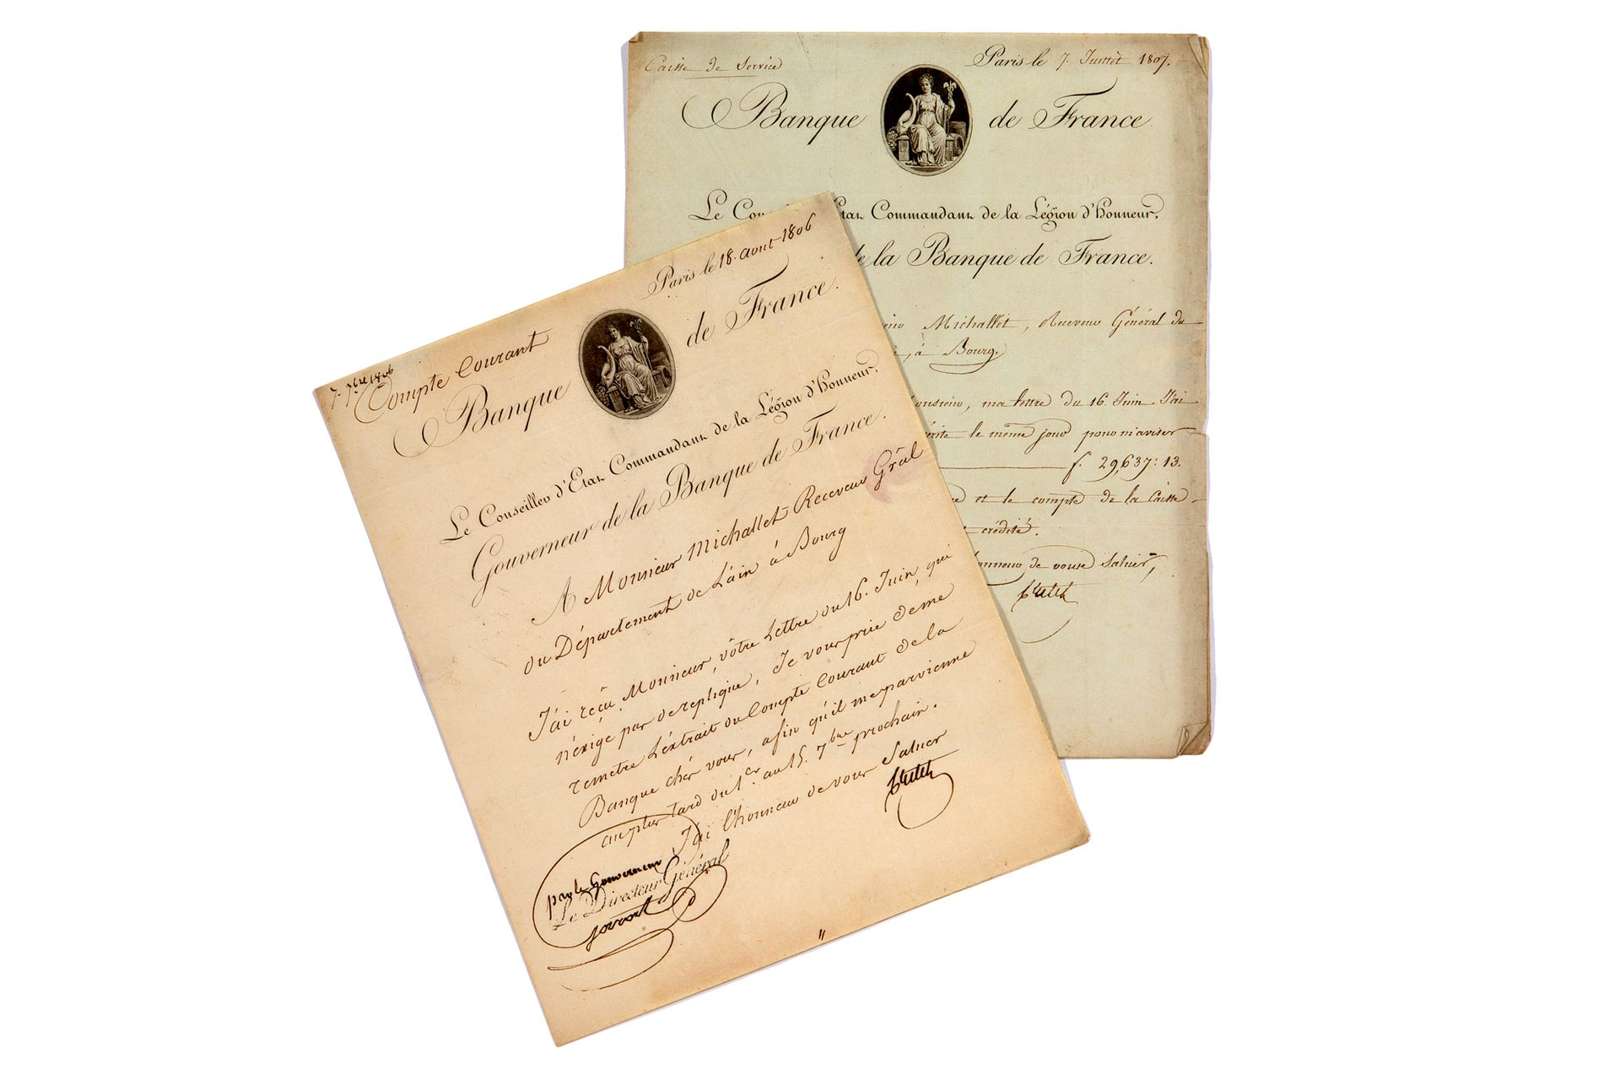 Caisse de Service
Paris le 7. Juillet 1807.
Banque de France
Le Con État Commandant de la Légion d'honneur,
de la Banque de France.
Michallet, Receveur Général du
, à Bourg.
Monsieur, ma lettre du 16 Juin J'ai
le même jour pour m'aviser
f. 29,637:13.
et le compte de la Caisse
crédité.
de vous Saluer,
7. 7bre 1806
Compte Courant
Paris le 18. aout 1806
Banque de France.
Le Conseiller d'État Commandant de la Légion d'honneur,
Gouverneur de la Banque de France.
A Monsieur Michallet Receveur Gral
du Département de L'ain à Bourg
J'ai reçu, Monsieur, vôtre Lettre du 16. Juin, qui
n'exige pas de replique, Je vous prie de me
remetre L'extrait du Compte Courant de la
Banque chés vous, afin qu'il me parvienne
au plus tard du 1er au 15. 7bre prochain.
J'ai l'honneur de vous Saluer
par le Gouverneur
Le Directeur Général